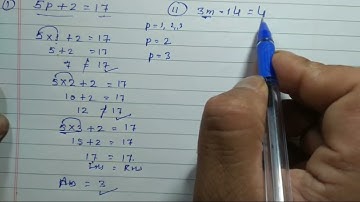 ① 5p + 2 = 17
5×1 + 2 = 17
5 + 2 = 17
7 ≠ 17
5×2 + 2 = 17
10 + 2 = 17
12 ≠ 17
5×3 + 2 = 17
15 + 2 = 17
17 = 17
LHS = RHS
Ans = 3
ⅱ 3m - 14 = 4
p = 1, 2, 3
p = 2
p = 3